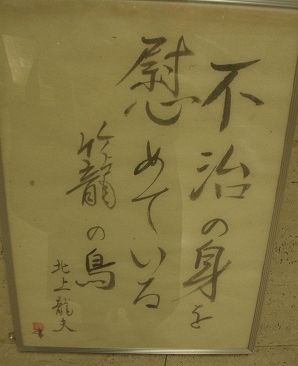 不治の身を
慰めている
籠の鳥
北上龍夫